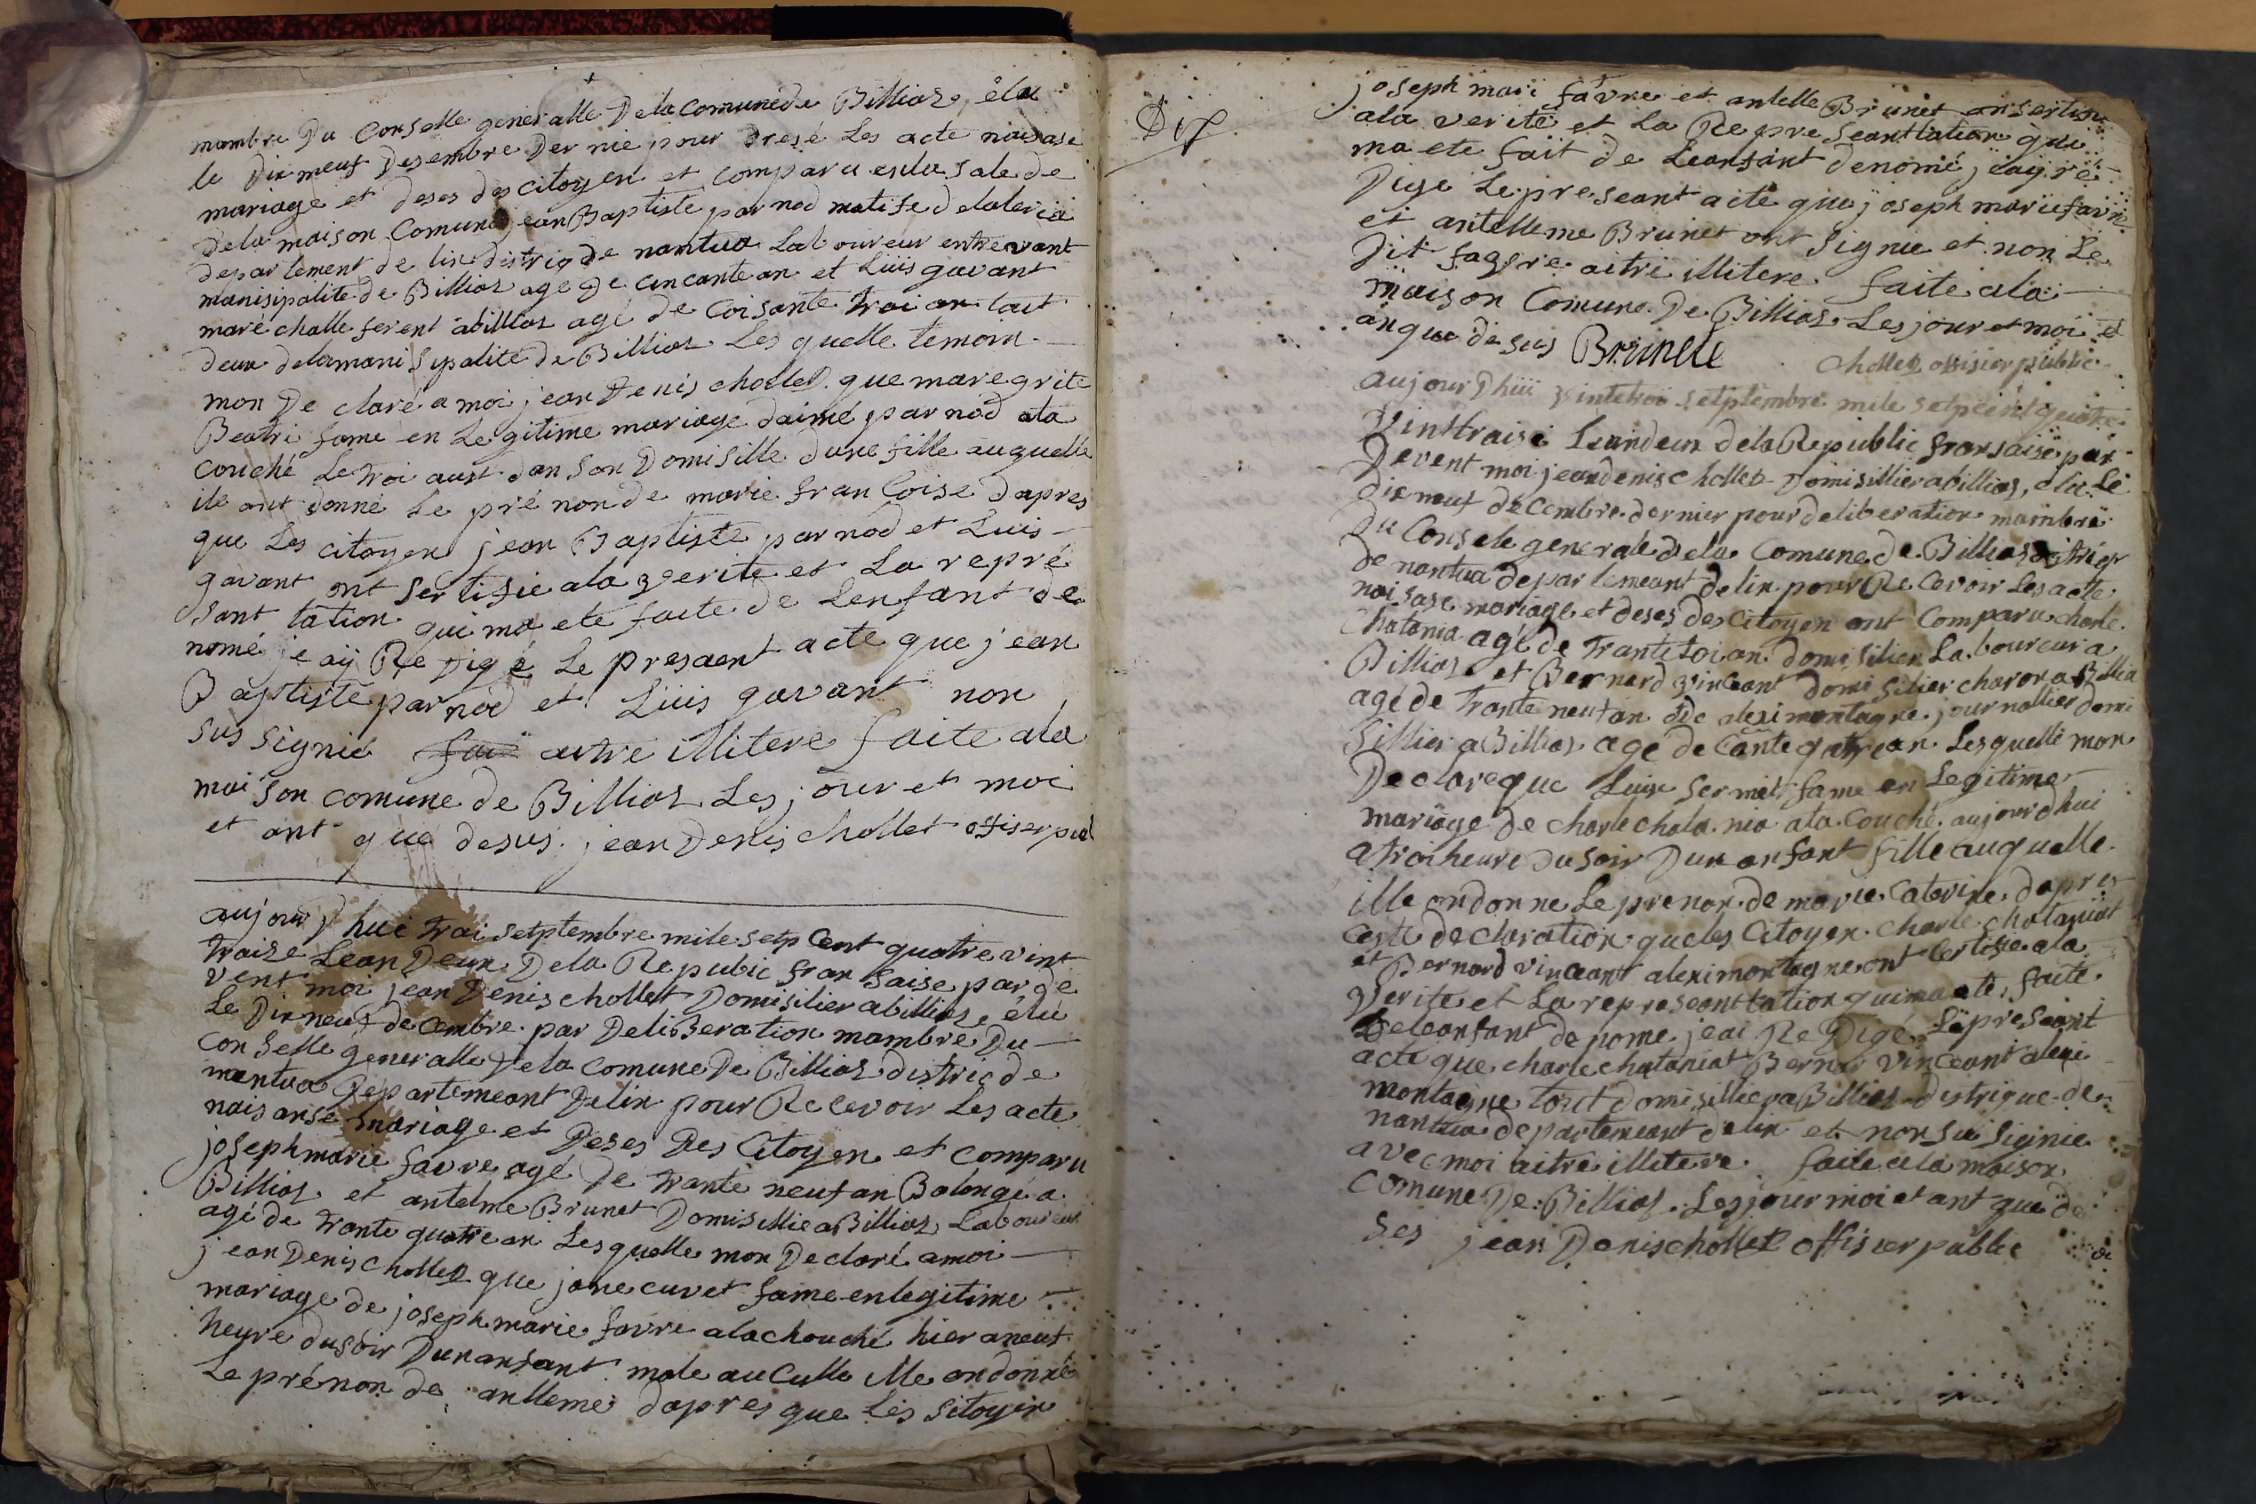 mambre Du Conselle generalle Dela Comune de Billiaz, élu
le Dix neuf Desembre Der nie pour dresé Les acte naisase
mariage et deses des citoyen et comparu enla sale de
Dela maison Comune jean Baptiste par nod
departement de lin distriq de nantua Laboureur
manisipalite de Billiaz age de cincante an et Luis gavant
maré challe ferent abilliaz agé de Coisante troi an tout
deux delamani sipalite de Billiaz Les quelle temoin
mon De claré a moi jean Denis chollet que maregrite
Beatri fame en Legitime mariage daimé par nod ala
couché Le troi aust dan son Domisille dune fille auquelle
ile ont donné Le pré non de marie fran Coise dapres
que Les citoyen jean Baptiste par nod et Luis
gavant ont sertifie ala verité et La repré
sant tation qui ma ete faite de Lenfant de
nomé je aÿ Re digé Le presaent acte que jean
Baptiste par nod et Luis gavant non
sus signié aitre illitere faite ala
mai son comune de Billiaz Les jour et moi
et ant que desus jean Denis chollet offiser pul
aujour D hui trai setptembre mile setp Cent quatre vint
traize Lean Deux Dela Repubic fran Saise par de
vent moi jean Denis chollet Domisilier abilliaz, élu
Le Dix neuf de Cembre par Deliberation mambre Du
Con selle generalle Dela Comune De Billiaz distriq de
mantua Departemeant Delin pour Recevoir Les acte
nais anse mariage et Deses Des Citoyen et comparu
joseph marie favre agé De trante neuf an Bolongé a
Billiaz et antelme Brunet Domisillie a Billiaz Laboureur
agé de trante quatre an Les quelle mon Declaré amoi
jean Denis chollet que jane cuvet fame enlegitime
mariage de joseph marie favre alachouché hier aneuf
heure dusoir Dun anfant male au Culle ille ondonné
Le prénon de anlleme dapres que Les sitoyin
Dix
joseph mari favre et antelle Brunet on sertisu
ala verité et La Repre seanttation qui
ma ete fait de Leanfant denomé jeaÿ ré
Dige Le preseant acte que joseph marie favre
et antelleme Brunet ont signie et non Le
Dit fagvre aitre illitere faite ala
maison Comune De Billiaz Les jour et moi et
an que de sus Brunete chollet offisier public
aujour Dhui vintetroi setptembre mile setpcent quatre
vintraise Leandeux dela Republic fransaise par
Devent moi jeandenis chollet Domisillier abilliaz, élu Le
dix neuf décembre dernier pour deliberation mambre
Du Consele generale dela Comune de Billiaz distriq
de nantua departemeant delin pour Recevoir Les acte
naisase mariage et deses des Citoyen ont Comparu charle
Chatania agé de trante toi an domisilier Laboureur a
Billiaz et Bernard vinceant domisilier charon a Billia
agé de trante neuf an de alexi montagne journallier domi
sillier a Billiaz age de Cante qatre an Les quelle mon
Declare que Luise Sermet fame en Legitime
mariage de charle chata nia ala Couché aujourdhui
a troi heure du soir Dun anfant fille auquelle
ille ondonne Le prenon de marie Caterine dapres
ceste declaration que les Citoyen Charle chataniat
et Bernard vinceant alexi montagne ont Certifie ala
verité et La represeanttation quima ete faite
De Leanfant de nome jeai Re Digé Le preseant
acte que charle chataniat Bernar vinceant alexi
montagne tout domisillie a Billiaz distrique de
nantua departemeant delin et non su signie
avec moi aitre illitere faite ala maison
Comune De Billiaz Les jour moi et ant que de
ses jean Denis chollet offisier public